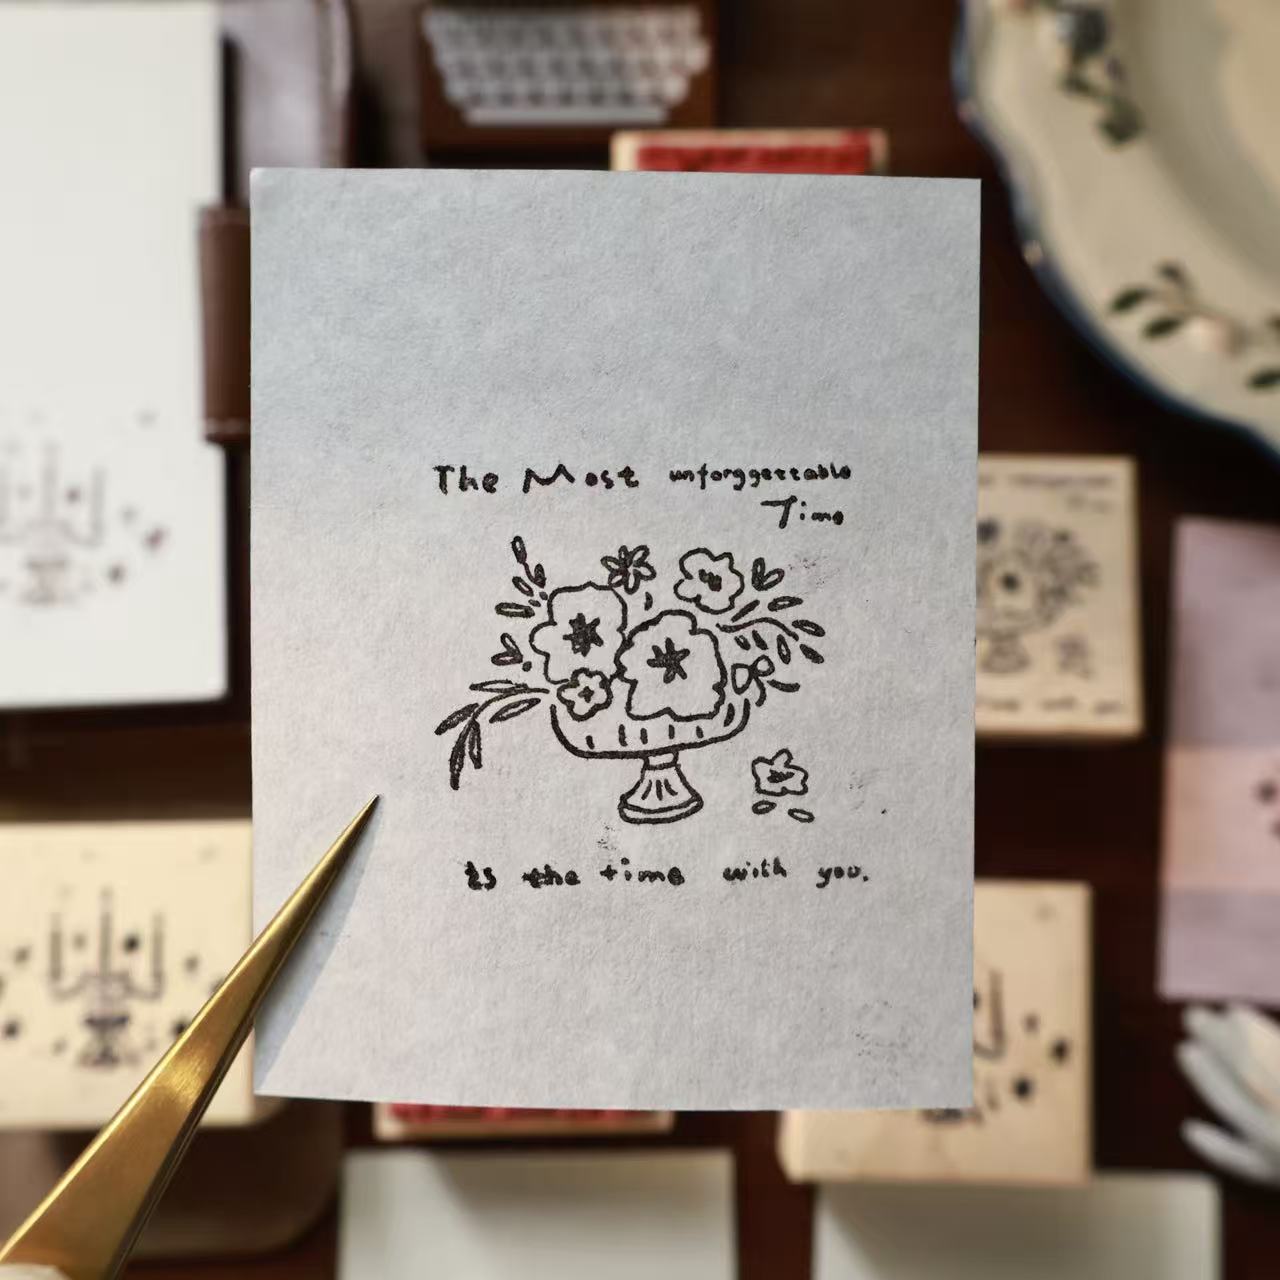 The Most unforggettable
Time
is the time with you.